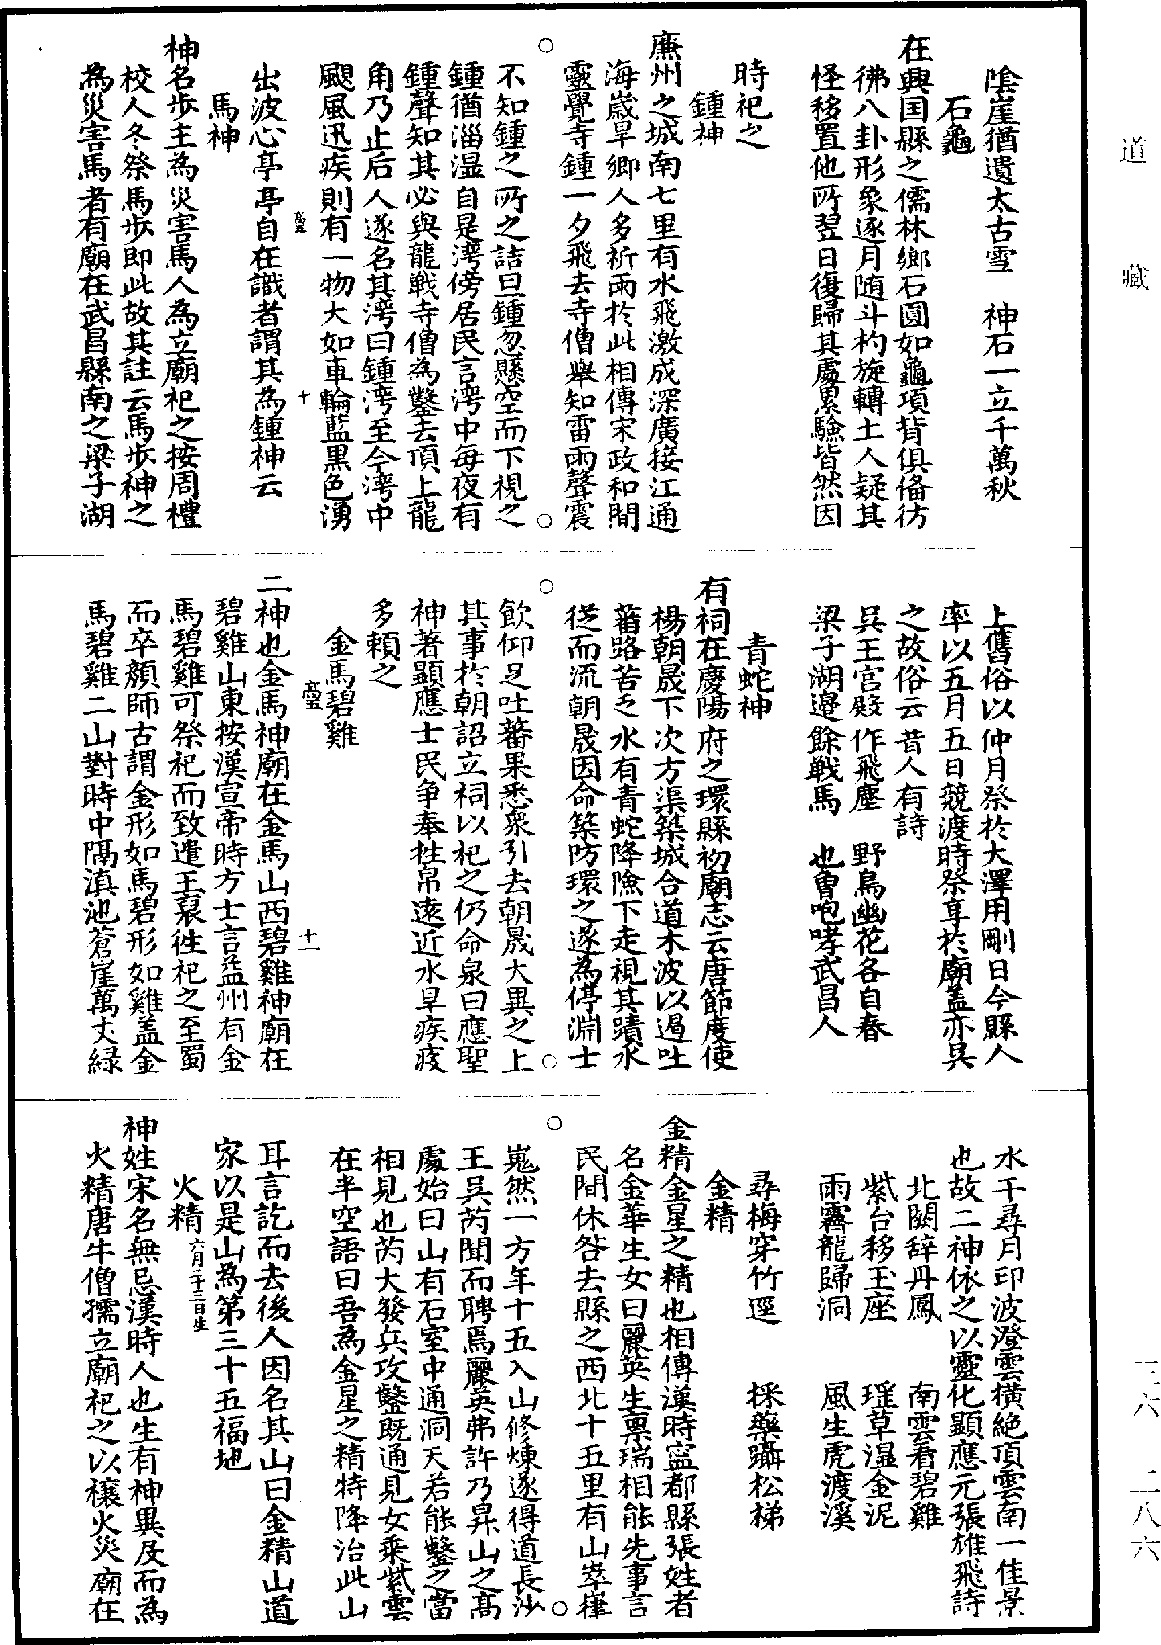 陰崖猶遺太古雪　神石一立千萬秋
石龜
在興国縣之儒林鄉石圓如龜項背俱俻彷
彿八卦形象逐月随斗杓旋轉土人疑其
怪移置他所翌日復歸其處累驗皆然因
時祀之
鍾神
㢘州之城南七里有水飛激成深廣接江通
海歲旱鄉人多祈雨於此相傳宋政和間
靈覺寺鍾一夕飛去寺僧舉知雷雨聲震
不知鍾之所之詰旦鍾忽懸空而下視之
鍾猶淄湿自是湾傍居民言湾中每夜有
鍾聲知其必與龍戰寺僧為鑿去頂上龍
角乃止后人遂名其湾曰鍾湾至今湾中
颶風迅疾則有一物大如車輪藍黒色湧
出波心亭亭自在識者謂其為鍾神云
十
馬神
神名步主為災害馬人為立廟祀之按周禮
校人冬祭馬步即此故其註云馬步神之
為災害馬者有廟在武昌縣南之梁子湖
上舊俗以仲月祭於大澤用剛日今縣人
率以五月五日競渡時祭享於廟盖亦吳
之故俗云昔人有詩
吳王宮殿作飛塵　野鳥幽花各自春
梁子湖邉餘戰馬　也曾咆哮武昌人
青蛇神
有祠在慶陽府之環縣初廟志云唐節度使
楊朝晟下次方渠築城合道木波以遏吐
蕃路苦乏水有青蛇降險下走視其蹟水
從而流朝晟因命築防環之遂為停淵士
飲仰足吐蕃果悉衆引去朝晟大異之上
其事於朝詔立祠以祀之仍命泉曰應聖
神著顯應士民争奉牲帛遠近水旱疾疫
多頼之
金馬碧雞
十一
二神也金馬神廟在金馬山西碧雞神廟在
碧雞山東按漢宣帝時方士言益州有金
馬碧雞可祭祀而致遣王襃徃祀之至蜀
而卒顏師古謂金形如馬碧形如雞盖金
馬碧雞二山對時中隔滇池蒼崖萬丈緑
水千尋月印波澄雲橫絶頂雲南一佳景
也故二神依之以靈化顯應元張雄飛詩
北闕辞丹鳳　南雲看碧雞
紫台移玉座　瑶草湿金泥
雨霽龍歸洞　風生虎渡溪
尋梅穿竹逕　採藥躡松梯
金精
金精金星之精也相傳漢時寧都縣張姓者
名金華生女曰麗英生禀瑞相能先事言
民間休咎去縣之西北十五里有山崒嵂
嵬然一方年十五入山修煉遂得道長沙
王吳芮聞而聘焉麗英弗許乃昇山之高
處始曰山有石室中通洞天若能鑿之當
相見也芮大發兵攻鑿既通見女乘紫雲
在半空語曰吾為金星之精特降治此山
耳言訖而去後人因名其山曰金精山道
家以是山為第三十五福地
火精六月二十三日生
神姓宋名無忌漢時人也生有神異及而為
火精唐牛僧孺立廟祀之以禳火災廟在
道藏
三六　二八六